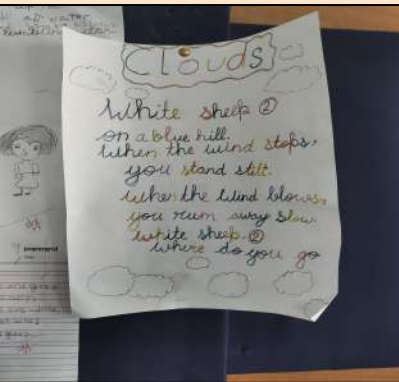 Clouds
White sheep ②
on a blue hill.
When the wind stops,
you stand still.
When the wind blows
you rum away slow
white sheep. ②
where do you go